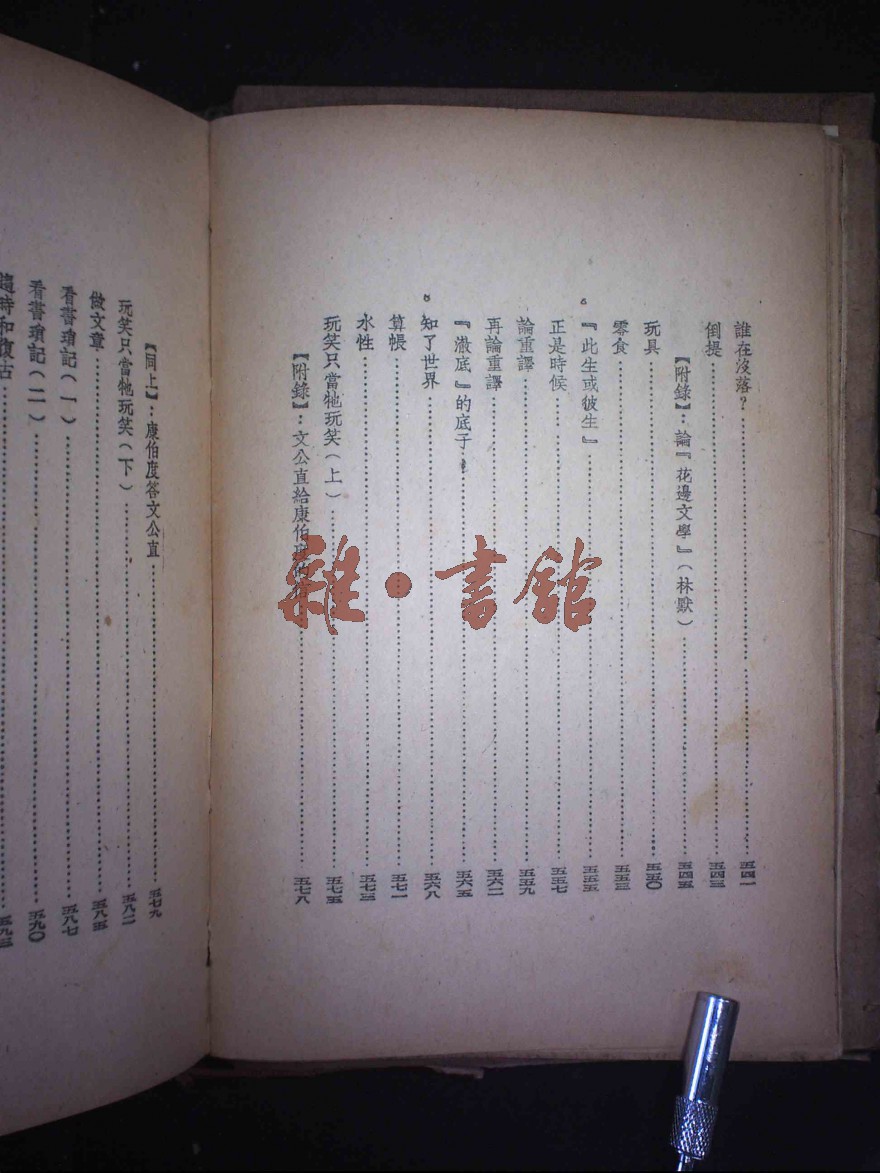 誰在沒落？……五四一
倒提……五四三
【附錄】：論『花邊文學』（林默）……五四五
玩具……五五〇
零食……五五三
『此生或彼生』……五五五
正是時候……五五七
論重譯……五五九
再論重譯……五六二
『澈底』的底子……五六五
知了世界……五六八
算帳……五七一
水性……五七三
玩笑只當牠玩笑（上）……五七五
【附錄】：文公直給康伯度……五七八
【同上】：康伯度答文公直……五七九
玩笑只當牠玩笑（下）……五八二
做文章……五八五
看書瑣記（一）……五八七
看書瑣記（二）……五九〇
趨時和復古……五九三
雜·書館